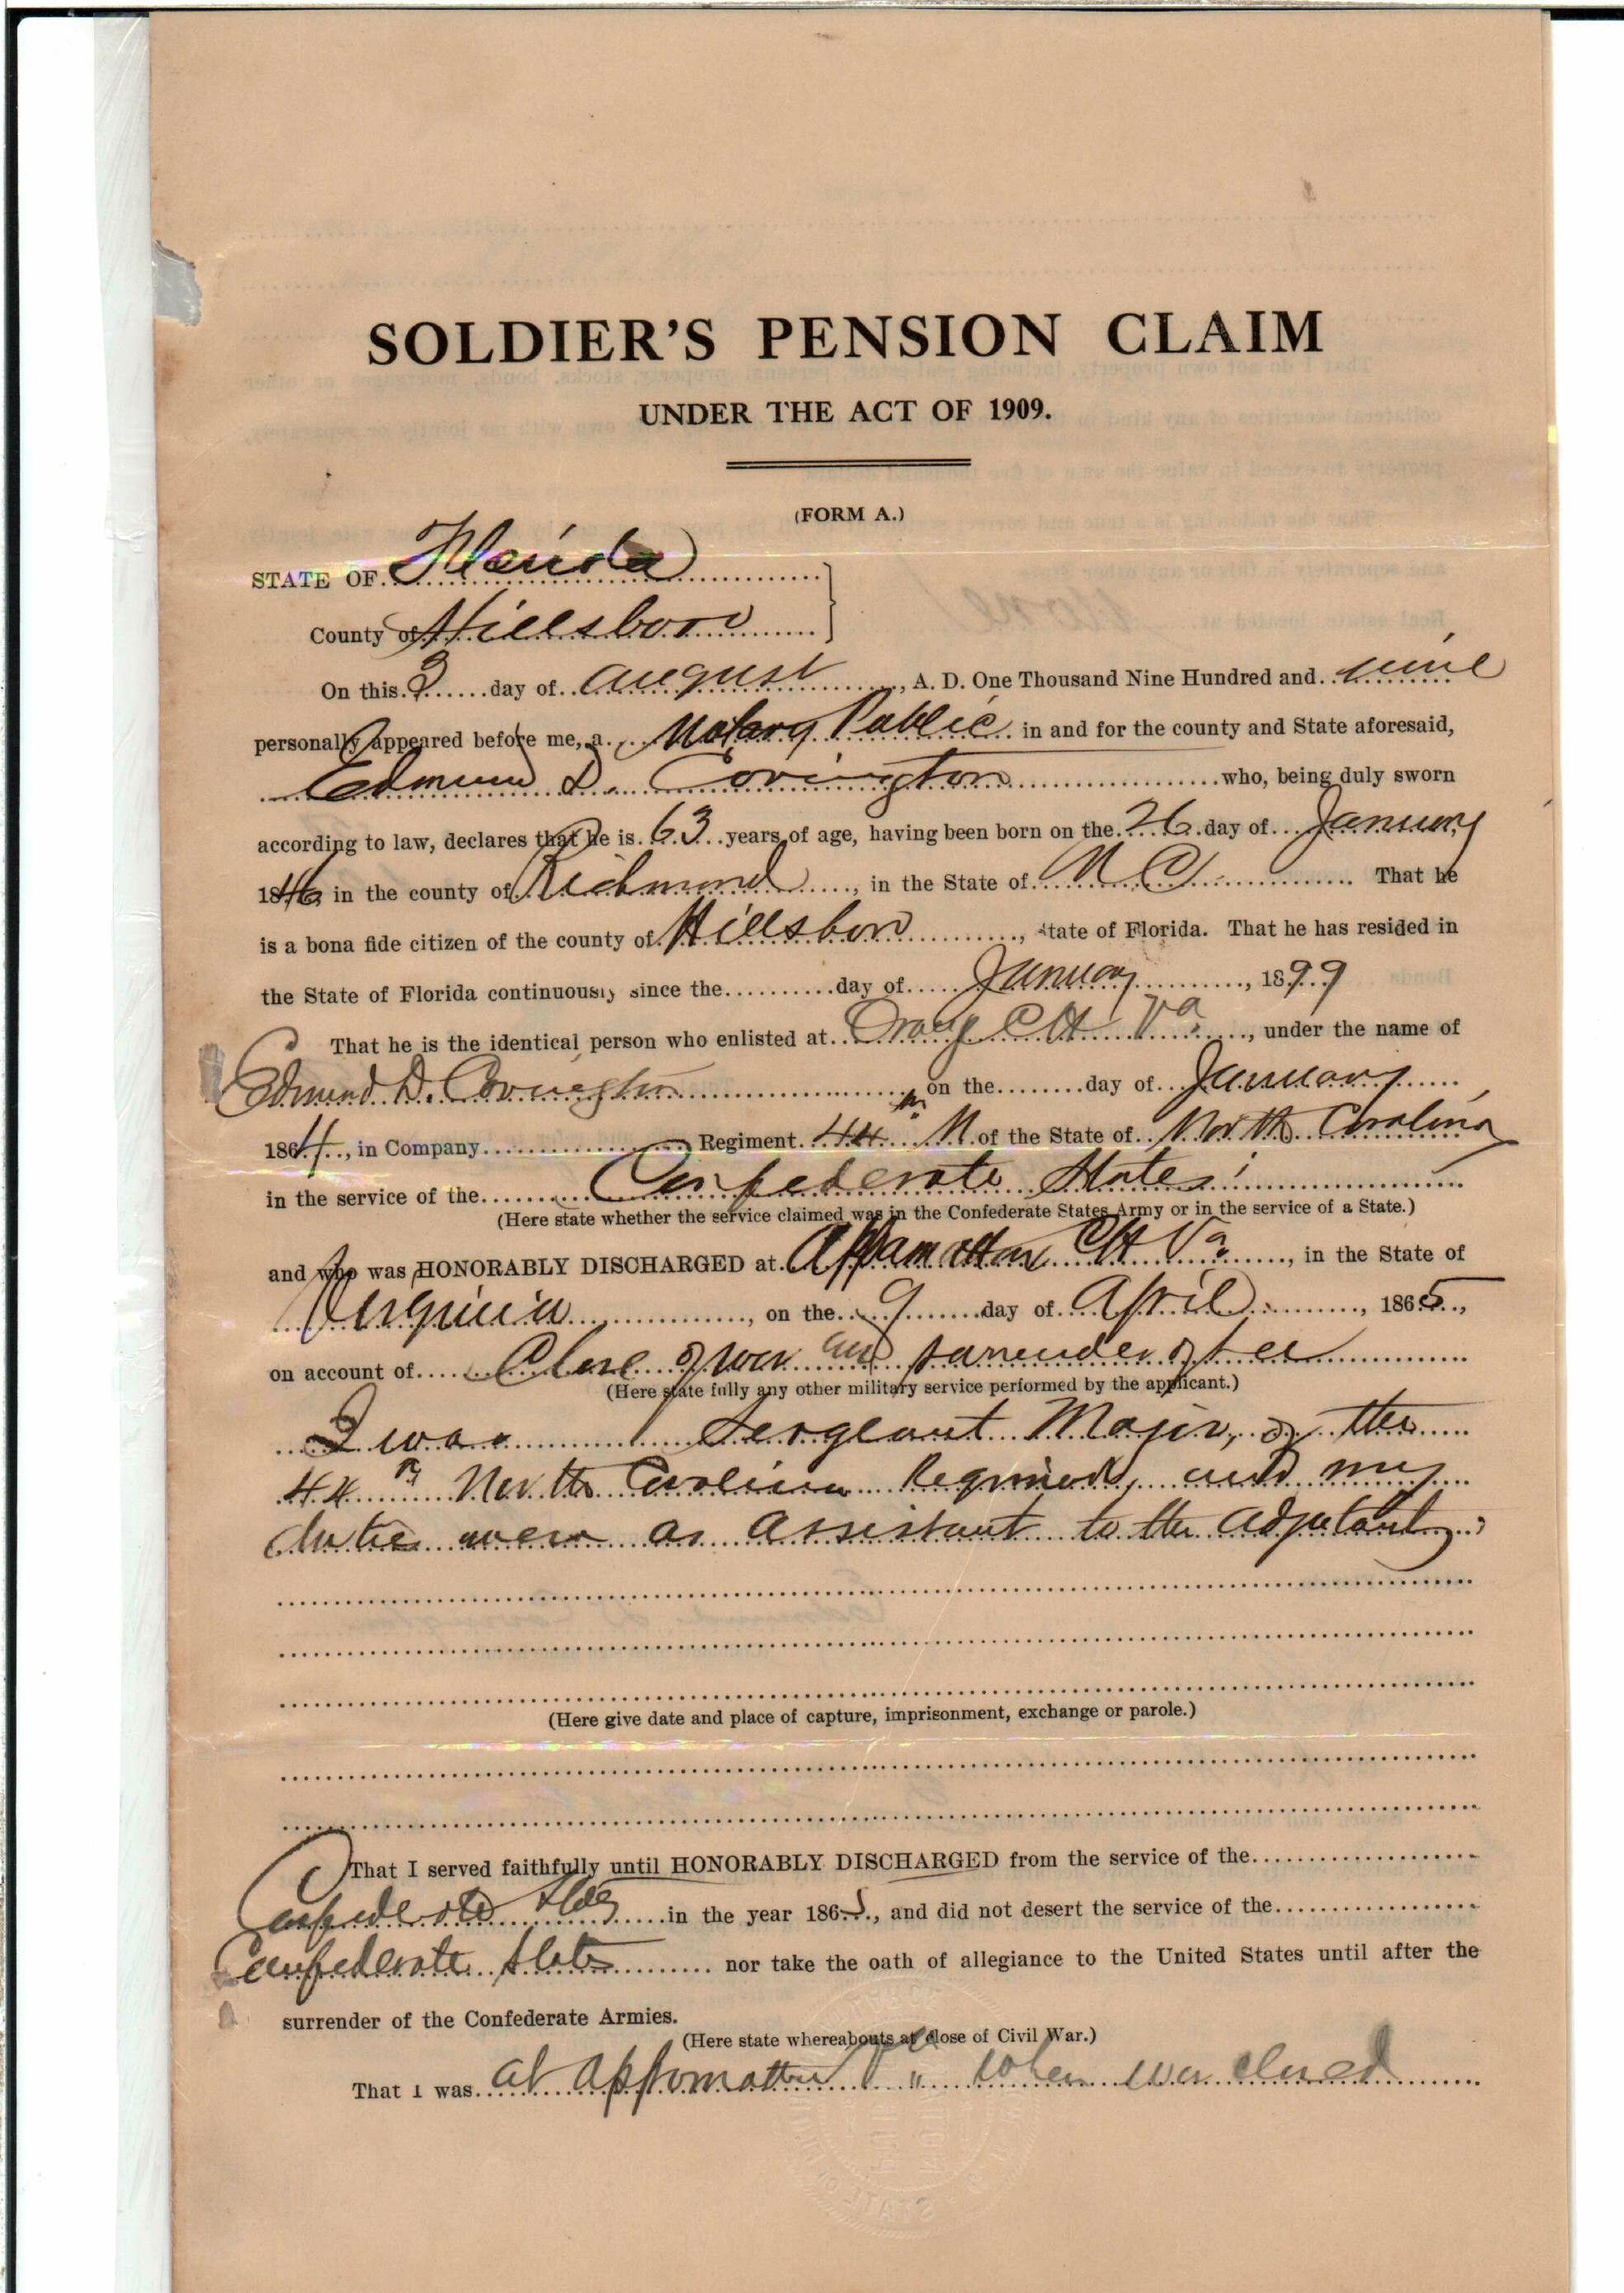 SOLDIER'S PENSION CLAIM
UNDER THE ACT OF 1909.
(FORM A.)
STATE OF Florida
County of Hillsboro
On this 3 day of August, A. D. One Thousand Nine Hundred and nine
personally appeared before me, a Notary Public in and for the county and State aforesaid,
Edmund D. Covington who, being duly sworn
according to law, declares that he is 63 years of age, having been born on the 26 day of January
1846 in the county of Richmond, in the State of N C. That he
is a bona fide citizen of the county of Hillsboro, State of Florida. That he has resided in
the State of Florida continuously since the day of January, 1899
That he is the identical person who enlisted at Orange C H Va, under the name of
Edmund D. Covington on the day of January
1864, in Company Regiment 44th N. of the State of North Carolina
in the service of the Confederate States
(Here state whether the service claimed was in the Confederate States Army or in the service of a State.)
and who was HONORABLY DISCHARGED at Appamattox C H Va, in the State of
Virginia, on the 9 day of April, 1865,
on account of Close of war and surrender of Lee
(Here state fully any other military service performed by the applicant.)
I was Sergeant Major, of the
44th North Carolina Regiment, and my
duties were as assistant to the adjutant.
(Here give date and place of capture, imprisonment, exchange or parole.)
That I served faithfully until HONORABLY DISCHARGED from the service of the
Confederate States in the year 1865, and did not desert the service of the
Confederate States nor take the oath of allegiance to the United States until after the
surrender of the Confederate Armies.
(Here state whereabouts at close of Civil War.)
That I was at Appomattox Va when war closed